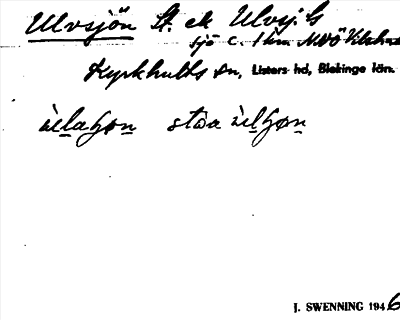 Ulvsjön St. ek Ulvsj. G
sjö c. 1 km NNÖ Vilshult
Kyrkhults sn, Listers hd, Blekinge län.
ùlaʃøn stòa ùlʃøn
J. SWENNING 1946